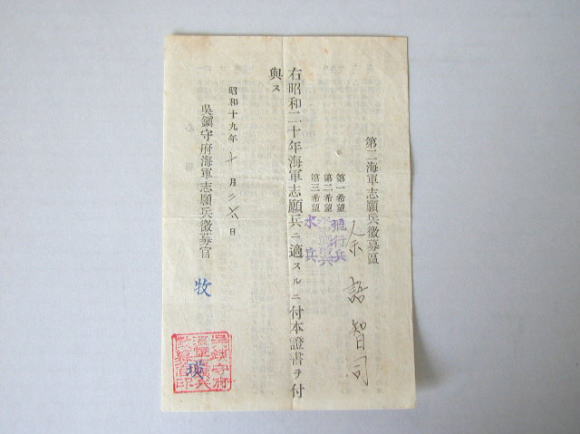 第二海軍志願兵徴募區
智司
第一希望 飛行兵
第二希望
第三希望 水兵
右昭和二十年海軍志願兵ニ適スルニ付本證書ヲ付
與ス
昭和十九年十月二六日
吳鎭守府海軍志願兵徴募官 牧